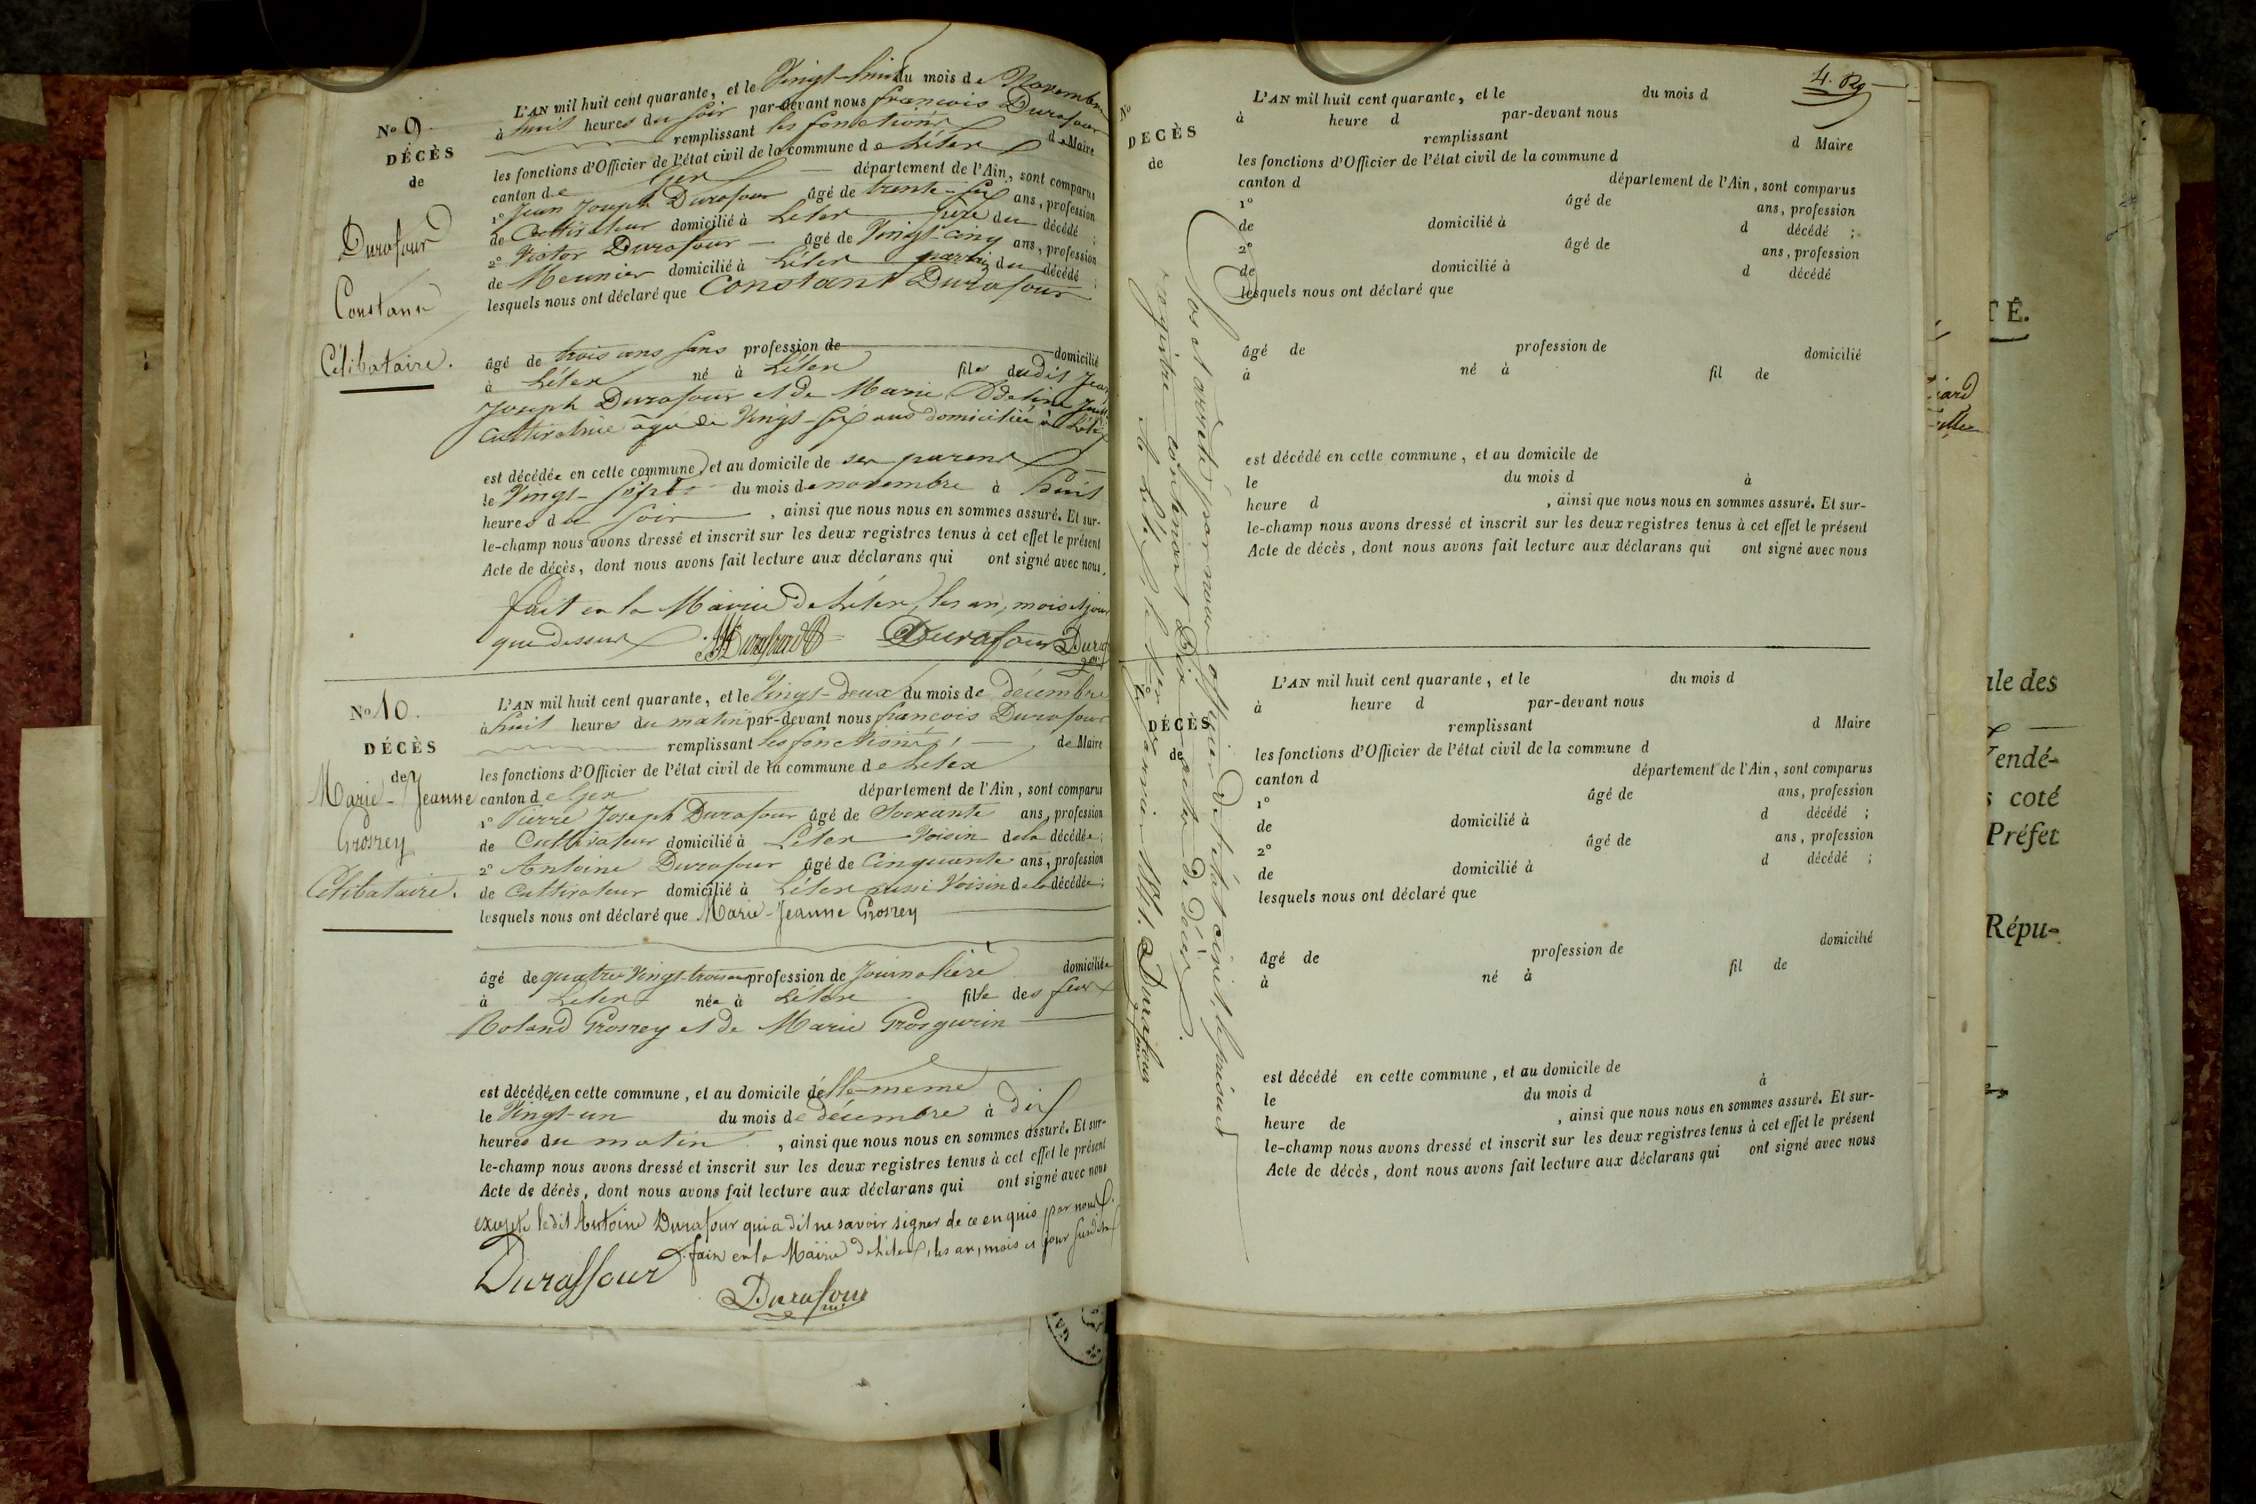 No 9
DÉCÈS
de
Durafour
Constant
Célibataire.
L'AN mil huit cent quarante, et le Vingt-huit du mois de Novembre
à huit heures du soir par-devant nous françois Durafour
remplissant les fonctions de Maire
les fonctions d'Officier de l'état civil de la commune de Lélex
canton de Gex département de l'Ain, sont comparus
1° Jean Joseph Durafour âgé de trente-six ans, profession
de Cultivateur domicilié à Lélex père du décédé ;
2° Victor Durafour âgé de Vingt-cinq ans, profession
de Meunier domicilié à Lélex parrain du décédé ;
lesquels nous ont déclaré que Constant Durafour
âgé de trois ans sans profession de domicilié
à Lélex né à Lélex fils dudit Jean
Joseph Durafour et de Marie Adeline
Cultivatrice agée de Vingt-six ans domiciliée à Lélex
est décédée en cette commune, et au domicile de ses parens
le Vingt-sept du mois de novembre à huit
heures du soir, ainsi que nous nous en sommes assuré. Et sur-
le-champ nous avons dressé et inscrit sur les deux registres tenus à cet effet le présent
Acte de décès, dont nous avons fait lecture aux déclarans qui ont signé avec nous.
fait en la Mairie de Lélex, les an, mois et jour
que dessus
Durafour Durafour
No 10.
DÉCÈS
de
Marie-Jeanne
Grosrey
Célibataire.
L'AN mil huit cent quarante, et le Vingt-deux du mois de décembre
à huit heures du matin par-devant nous françois Durafour
remplissant les fonctions de Maire
les fonctions d'Officier de l'état civil de la commune de Lélex
canton de Gex département de l'Ain, sont comparus
1° Pierre Joseph Durafour âgé de Soixante ans, profession
de Cultivateur domicilié à Lélex Voisin de la décédée ;
2° Antoine Durafour âgé de Cinquante ans, profession
de Cultivateur domicilié à Lélex aussi Voisin de la décédée ;
lesquels nous ont déclaré que Marie-Jeanne Grosrey
âgé de quatre Vingt-trois ans profession de Journalière domiciliée
à Lélex née à Lélex fille des feux
Roland Grosrey et de Marie Grosgurin
est décédée en cette commune, et au domicile d'elle-même
le Vingt-un du mois de décembre à dix
heures du matin, ainsi que nous nous en sommes assuré. Et sur-
le-champ nous avons dressé et inscrit sur les deux registres tenus à cet effet le présent
Acte de décès, dont nous avons fait lecture aux déclarans qui ont signé avec nous
excepté ledit Antoine Durafour qui a dit ne savoir signer de ce enquis par nous.
fait en la Mairie de Lélex, les an, mois et jour susdits
Duraffour
Durafour
4.
No
DÉCÈS
de
L'AN mil huit cent quarante, et le du mois d
à heure d par-devant nous
remplissant d Maire
les fonctions d'Officier de l'état civil de la commune d
canton d département de l'Ain, sont comparus
1° âgé de ans, profession
de domicilié à d décédé ;
2° âgé de ans, profession
de domicilié à d décédé
lesquels nous ont déclaré que
âgé de profession de domicilié
à né à fil de
est décédé en cette commune, et au domicile de
le du mois d à
heure d , ainsi que nous nous en sommes assuré. Et sur-
le-champ nous avons dressé et inscrit sur les deux registres tenus à cet effet le présent
Acte de décès, dont nous avons fait lecture aux déclarans qui ont signé avec nous
Clos et arrêté par nous officier de l'état civil, le présent
registre contenant Dix actes de décès.
à Lélex, le 1er janvier 1841. Durafour
No
DÉCÈS
de
L'AN mil huit cent quarante, et le du mois d
à heure d par-devant nous
remplissant d Maire
les fonctions d'Officier de l'état civil de la commune d
canton d département de l'Ain, sont comparus
1° âgé de ans, profession
de domicilié à d décédé ;
2° âgé de ans, profession
de domicilié à d décédé ;
lesquels nous ont déclaré que
âgé de profession de domicilié
à né à fil de
est décédé en cette commune, et au domicile de
le du mois d à
heure de , ainsi que nous nous en sommes assuré. Et sur-
le-champ nous avons dressé et inscrit sur les deux registres tenus à cet effet le présent
Acte de décès, dont nous avons fait lecture aux déclarans qui ont signé avec nous
TÉ.
ale des
Vendé-
s coté
Préfet
Répu-